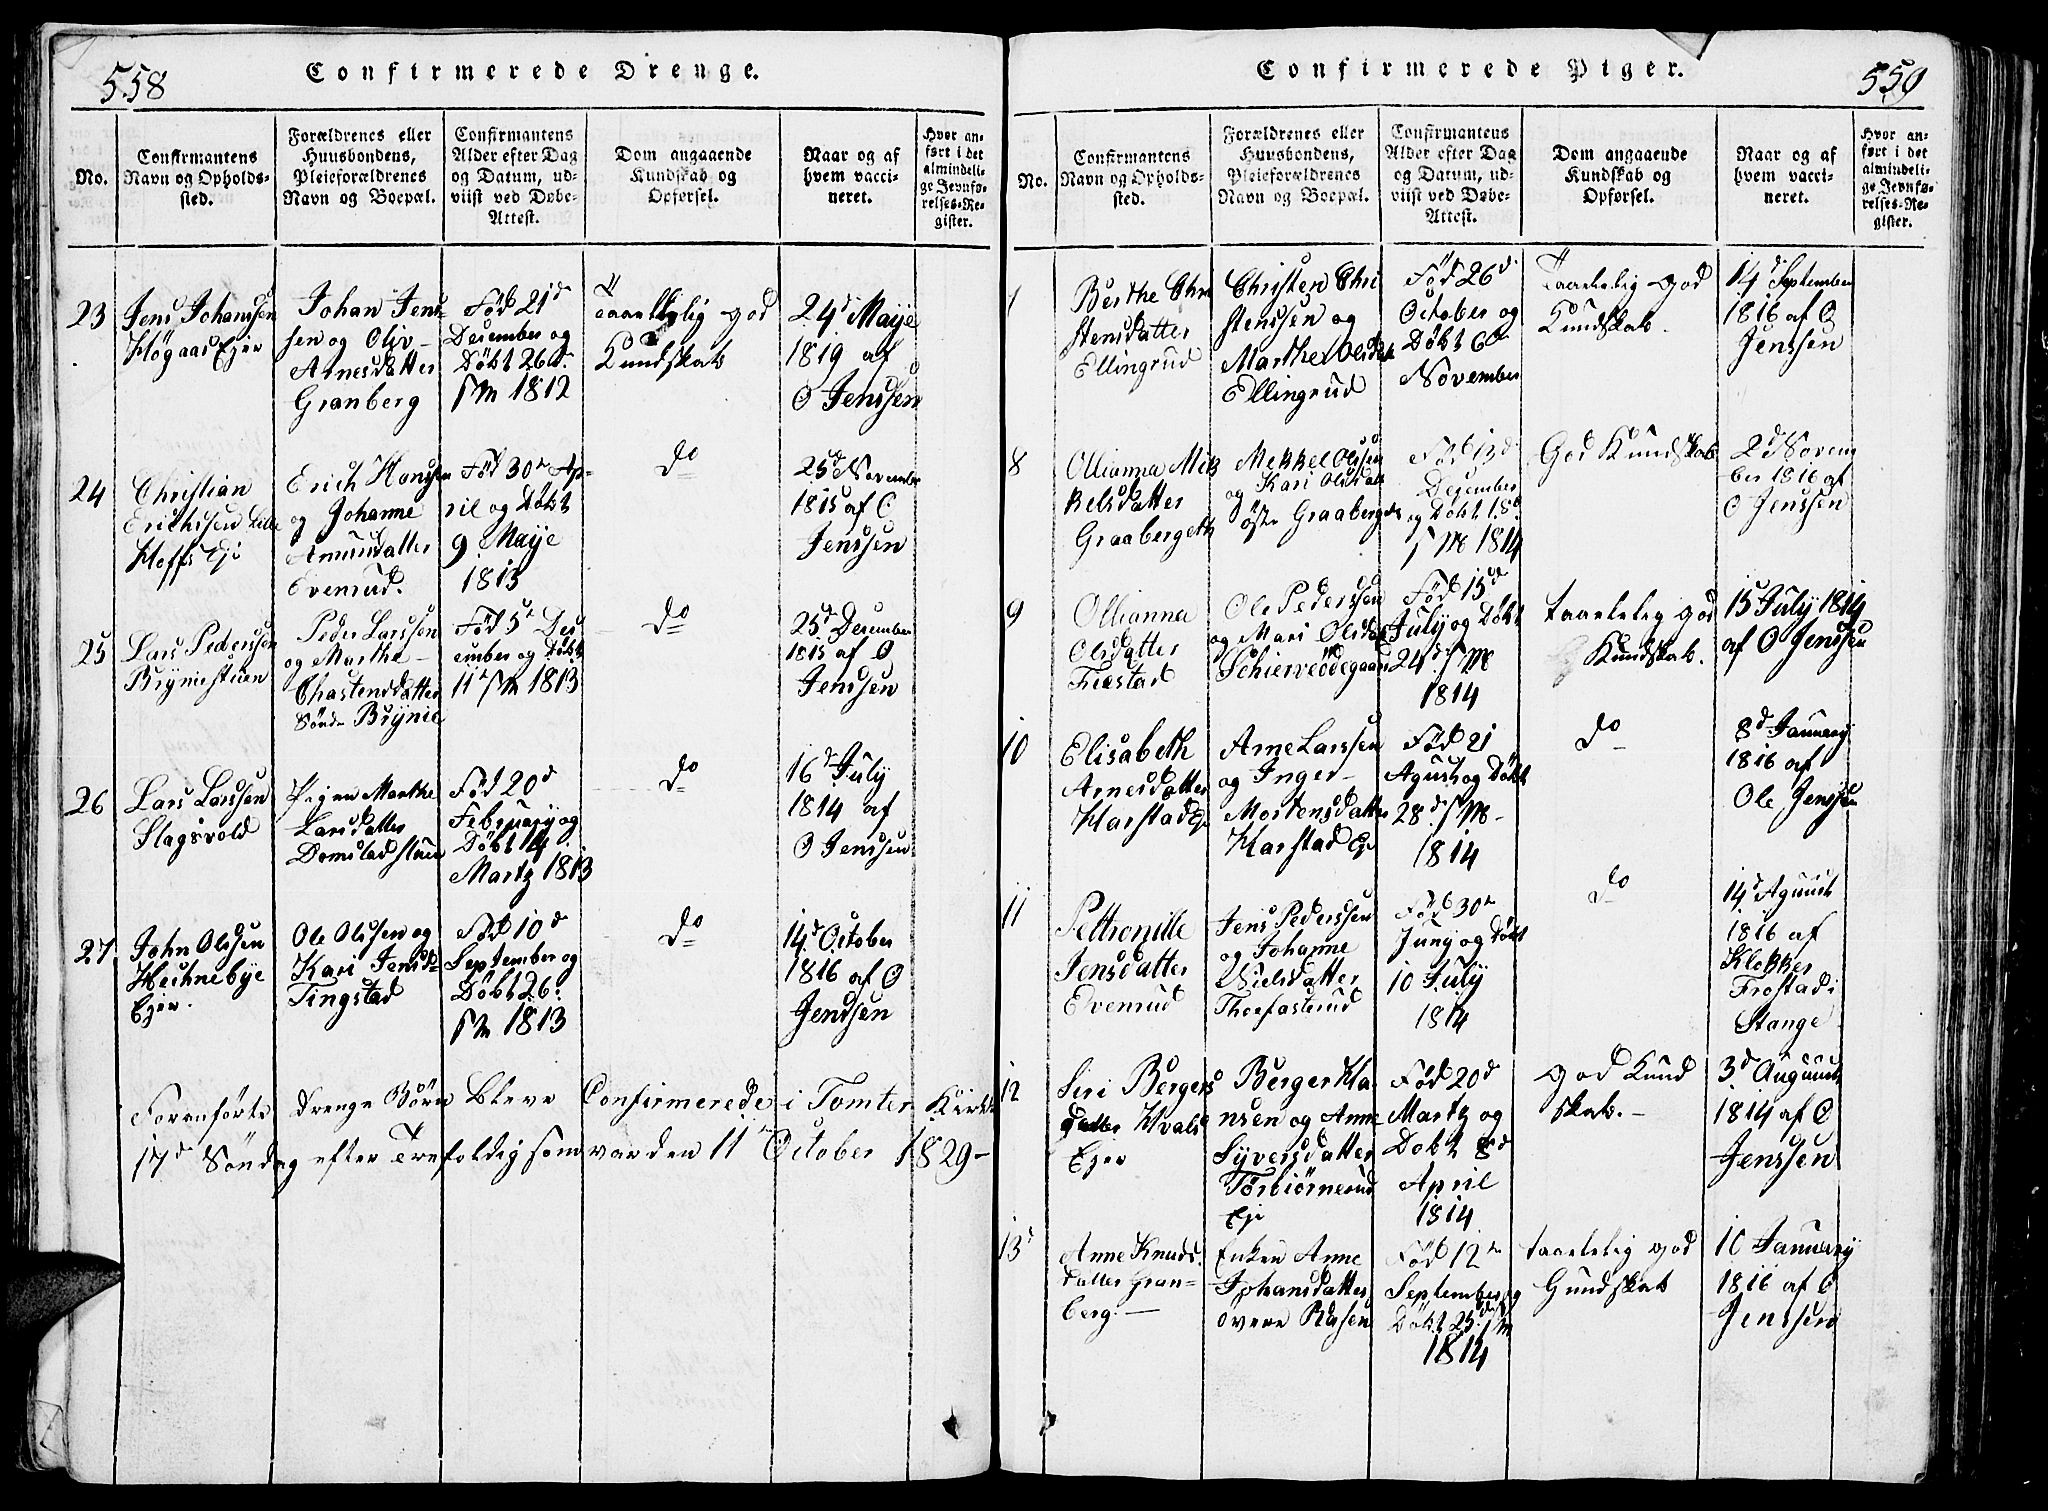 558
Confirmerede Drenge.
No.
Confirmantens
Navn og Opholds-
sted.
Forældrenes eller
Huusbondens,
Pleieforældrenes
Navn og Boepæl.
Confirmantens
Alder efter Dag
og Datum, ud-
viist ved Døbe-
Attest.
Dom angaaende
Kundskab og
Opførsel.
Naar og af
hvem vacci-
neret.
Hvor an-
ført i det
almindeli-
ge Jevnfø-
relses-Re-
gister.
23
Jens Johanssen
Høgaas Ejer
Johan Jens
sen og Oliv-
Arnesdatter
Granberg
Fød 21d
December og
Døbt 26d.
s M 1812
Taalelig god
Kundskab
24d Maije
1819 af
O Jenssen
24
Christian
Erichssen Lille
Hoffs Eje
Erich Hanssen
og Johanne
Amundatter
Evenrud.
Fød 30te Ap-
ril og Døbt
9. Maije
1813
do
25d November
1815 af O
Jenssen
25
Lars Pederssen
Brÿniestuen
Peder Larssen
og Marthe-
Chastensdatter
Søndr Brÿnie
Fød 5te Dec
ember og Døbt
11te s M 1813
do
25d December
1815 af O
Jenssen
26
Lars Larssen
Slagsvold
Pigen Marthe
Larsdatter
Domstad stuen
Fød 20d
Februarÿ og
Døbt 14
Martz 1813
do
16d Julÿ
1814 af
O Jenssen
27.
John Olssen
Huhnebÿe
Ejer.
Ole Olssen og
Kari Jensd-
Tingstad
Fød 10d
September og
Døbt 26.
s M 1813
do
14d October
1816 af O
Jenssen
Foranførte drenge Børn Bleve Confirmerede i Tomter Kirke
17d Søndag efter Trefoldig som var den 11te October 1829-
559
Confirmerede Piger.
No.
Confirmantens
Navn og Opholds-
sted.
Forældrenes eller
Huusbondens,
Pleieforældrenes
Navn og Boepæl.
Confirmantens
Alder efter Dag
og Datum, ud-
viist ved Døbe-
Attest.
Dom angaaende
Kundskab og
Opførsel.
Naar og af
hvem vacci-
neret.
Hvor an-
ført i det
almindeli-
ge Jevnfø-
relses-Re-
gister.
7
Berthe Chri
stensdatter
Ellingrud
Christen Chri
stenssen og
Marthe Olsdat
Ellingrud
Fød 26d
October og
Døbt 6te
November
Taalelig god
Kundskab.
14d September
1816 af O
Jenssen
8
Ollianna Mik
kelsdatter
Graabergeth
Mekkel Olssen
og Kari Olsdatr
östre Graaberget
Fød 13d
December
og Døbt 18d
s M 1814
God Kundskab
2d Novem
ber 1816 af
O Jenssen
9
Ollianna
Olsdatter
Fiestad
Ole Pederssen
og Mari Olsdat
Schierveödegaard
Fød 15d
Julÿ og Døbt
24d. s M
1814
taalelig god
Kundskab.
15 Julÿ 1814
af O Jenssen
10
Elisabeth
Arnesdatter
Harstad Eje
Arne Larssen
og Inger-
Mortensdatter
Harstad Eje
Fød 21
Agust og Døbt
28d. s M-
1814
do
8d Januarÿ
1816 af
Ole Jenssen
11
Pettronille
Jensdatter
Evenrud
Jens Pederssen
og Johanne
Nielsdatter
Thorfasterud
Fød 30te
Junÿ og Døbt
10 Julÿ
1814
do
14d Aguust
1816 af
Klokker
Frostad i
Stange
12
Siri Bergers
datter Hvals
Ejer
Berger Ha
nsen og Anne
Syversdatter
Torbiörnerud
Eje
Fød 20d
Martz og
Døbt 8d
April
1814
god Kund
skab.-
3d Auguust
1814 af O
Jenssen
13d
Anne Knuds
datter Gran-
berg.
Enken Anne
Johansdatter
övere Rusen
Fød 12te
September og
Døbt 25d s M
1814
taalelig god
Gundskab
10 Januarÿ
1816 af O
Jenssen